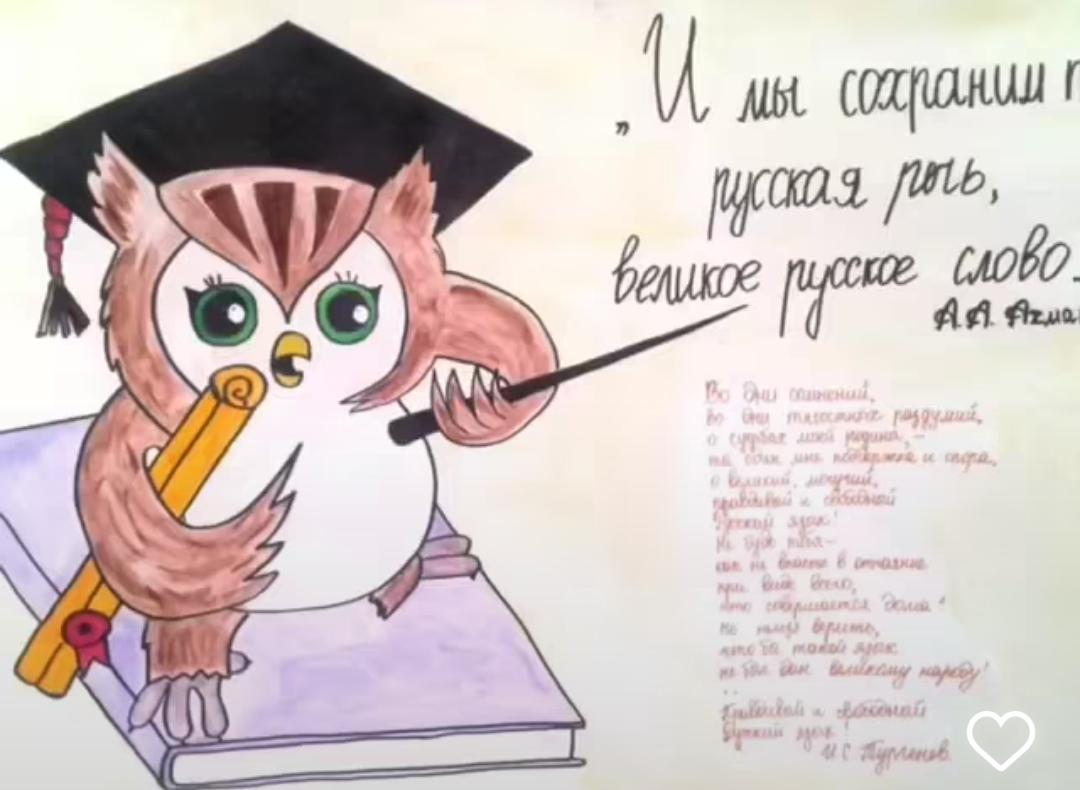 „И мы сохраним
русская речь,
великое русское слово.
А.А. Ахма
Во дни сомнений,
во дни тягостных раздумий,
о судьбах моей родины, –
ты один мне поддержка и опора,
о великий, могучий,
правдивый и свободный
Русский язык!
Не будь тебя –
как не впасть в отчаяние
при виде всего,
что совершается дома!
Но нельзя верить,
что бы такой язык
не был дан великому народу!
Правдивый и свободный
Русский язык!
И.С. Тургенев